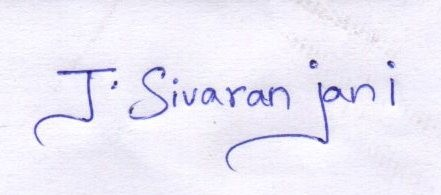 J. Sivaranjani